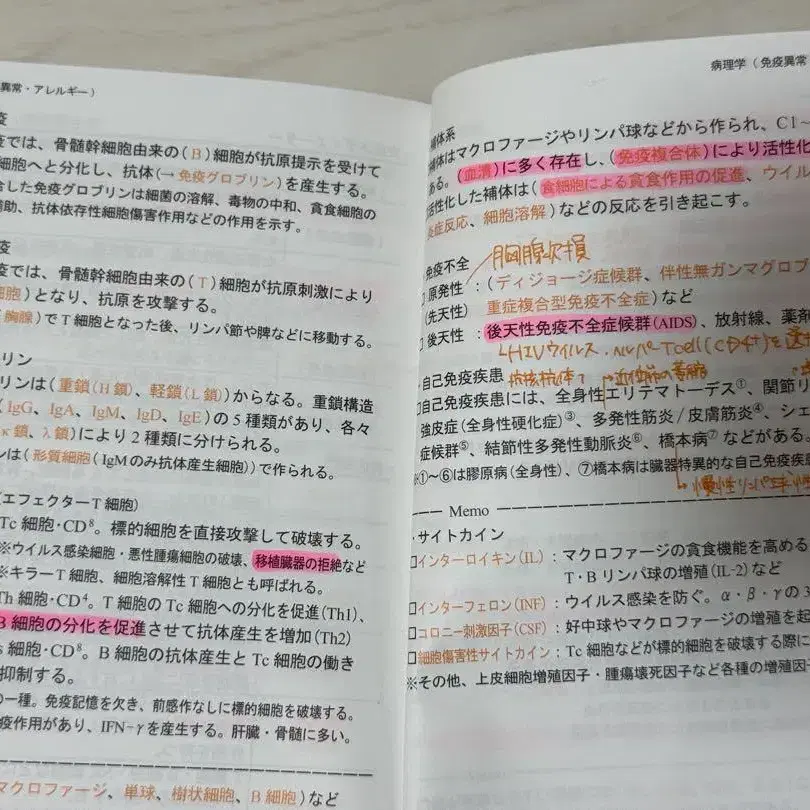 異常・アレルギー）
疫
疫では、骨髄幹細胞由来の（B）細胞が抗原提示を受けて
細胞へと分化し、抗体（→免疫グロブリン）を産生する。
合した免疫グロブリンは細菌の溶解、毒物の中和、貪食細胞の
補助、抗体依存性細胞傷害作用などの作用を示す。
疫
疫では、骨髄幹細胞由来の（T）細胞が抗原刺激により
細胞）となり、抗原を攻撃する。
胸腺）でT細胞となった後、リンパ節や脾などに移動する。
リン
リンは（重鎖（H鎖）、軽鎖（L鎖））からなる。重鎖構造
（IgG、IgA、IgM、IgD、IgE）の5種類があり、各々
κ鎖、λ鎖）により2種類に分けられる。
ンは（形質細胞（IgMのみ抗体産生細胞））で作られる。
（エフェクターT細胞）
Tc細胞・CD⁸。標的細胞を直接攻撃して破壊する。
※ウイルス感染細胞・悪性腫瘍細胞の破壊、移植臓器の拒絶など
※キラーT細胞、細胞溶解性T細胞とも呼ばれる。
Th細胞・CD⁴。T細胞のTc細胞への分化を促進（Th1）、
B細胞の分化を促進させて抗体産生を増加（Th2）
s細胞・CD⁸。B細胞の抗体産生とTc細胞の働き
抑制する。
の一種。免疫記憶を欠き、前感作なしに標的細胞を破壊する。
疫作用があり、IFN-γを産生する。肝臓・骨髄に多い。
マクロファージ、単球、樹状細胞、B細胞）など
病理学（免疫異常
補体系
補体はマクロファージやリンパ球などから作られ、C1～
ある。（血清）に多く存在し、（免疫複合体）により活性化
活性化した補体は（食細胞による貪食作用の促進、ウイル
炎症反応、細胞溶解）などの反応を引き起こす。
免疫不全
胸腺欠損
□原発性：（ディジョージ症候群、伴性無ガンマグロブ
（先天性） 重症複合型免疫不全症）など
□後天性：後天性免疫不全症候群（AIDS）、放射線、薬剤
HIVウイルス・ヘルパーTcell（CD4+）を
・自己免疫疾患
抗核抗体↑
□自己免疫疾患には、全身性エリテマトーデス①、関節リ
強皮症（全身性硬化症）③、多発性筋炎/皮膚筋炎④、シェ
症候群⑤、結節性多発性動脈炎⑥、橋本病⑦などがある。
※①～⑥は膠原病（全身性）、⑦橋本病は臓器特異的な自己免疫疾患
慢性リンパ球
Memo
・サイトカイン
□インターロイキン（IL）：マクロファージの貪食機能を高める
T・Bリンパ球の増殖（IL-2）など
□インターフェロン（INF）：ウイルス感染を防ぐ。α・β・γの3
□コロニー刺激因子（CSF）：好中球やマクロファージの増殖を起
□細胞傷害性サイトカイン：Tc細胞などが標的細胞を破壊する際に
※その他、上皮細胞増殖因子・腫瘍壊死因子など各種の増殖因子